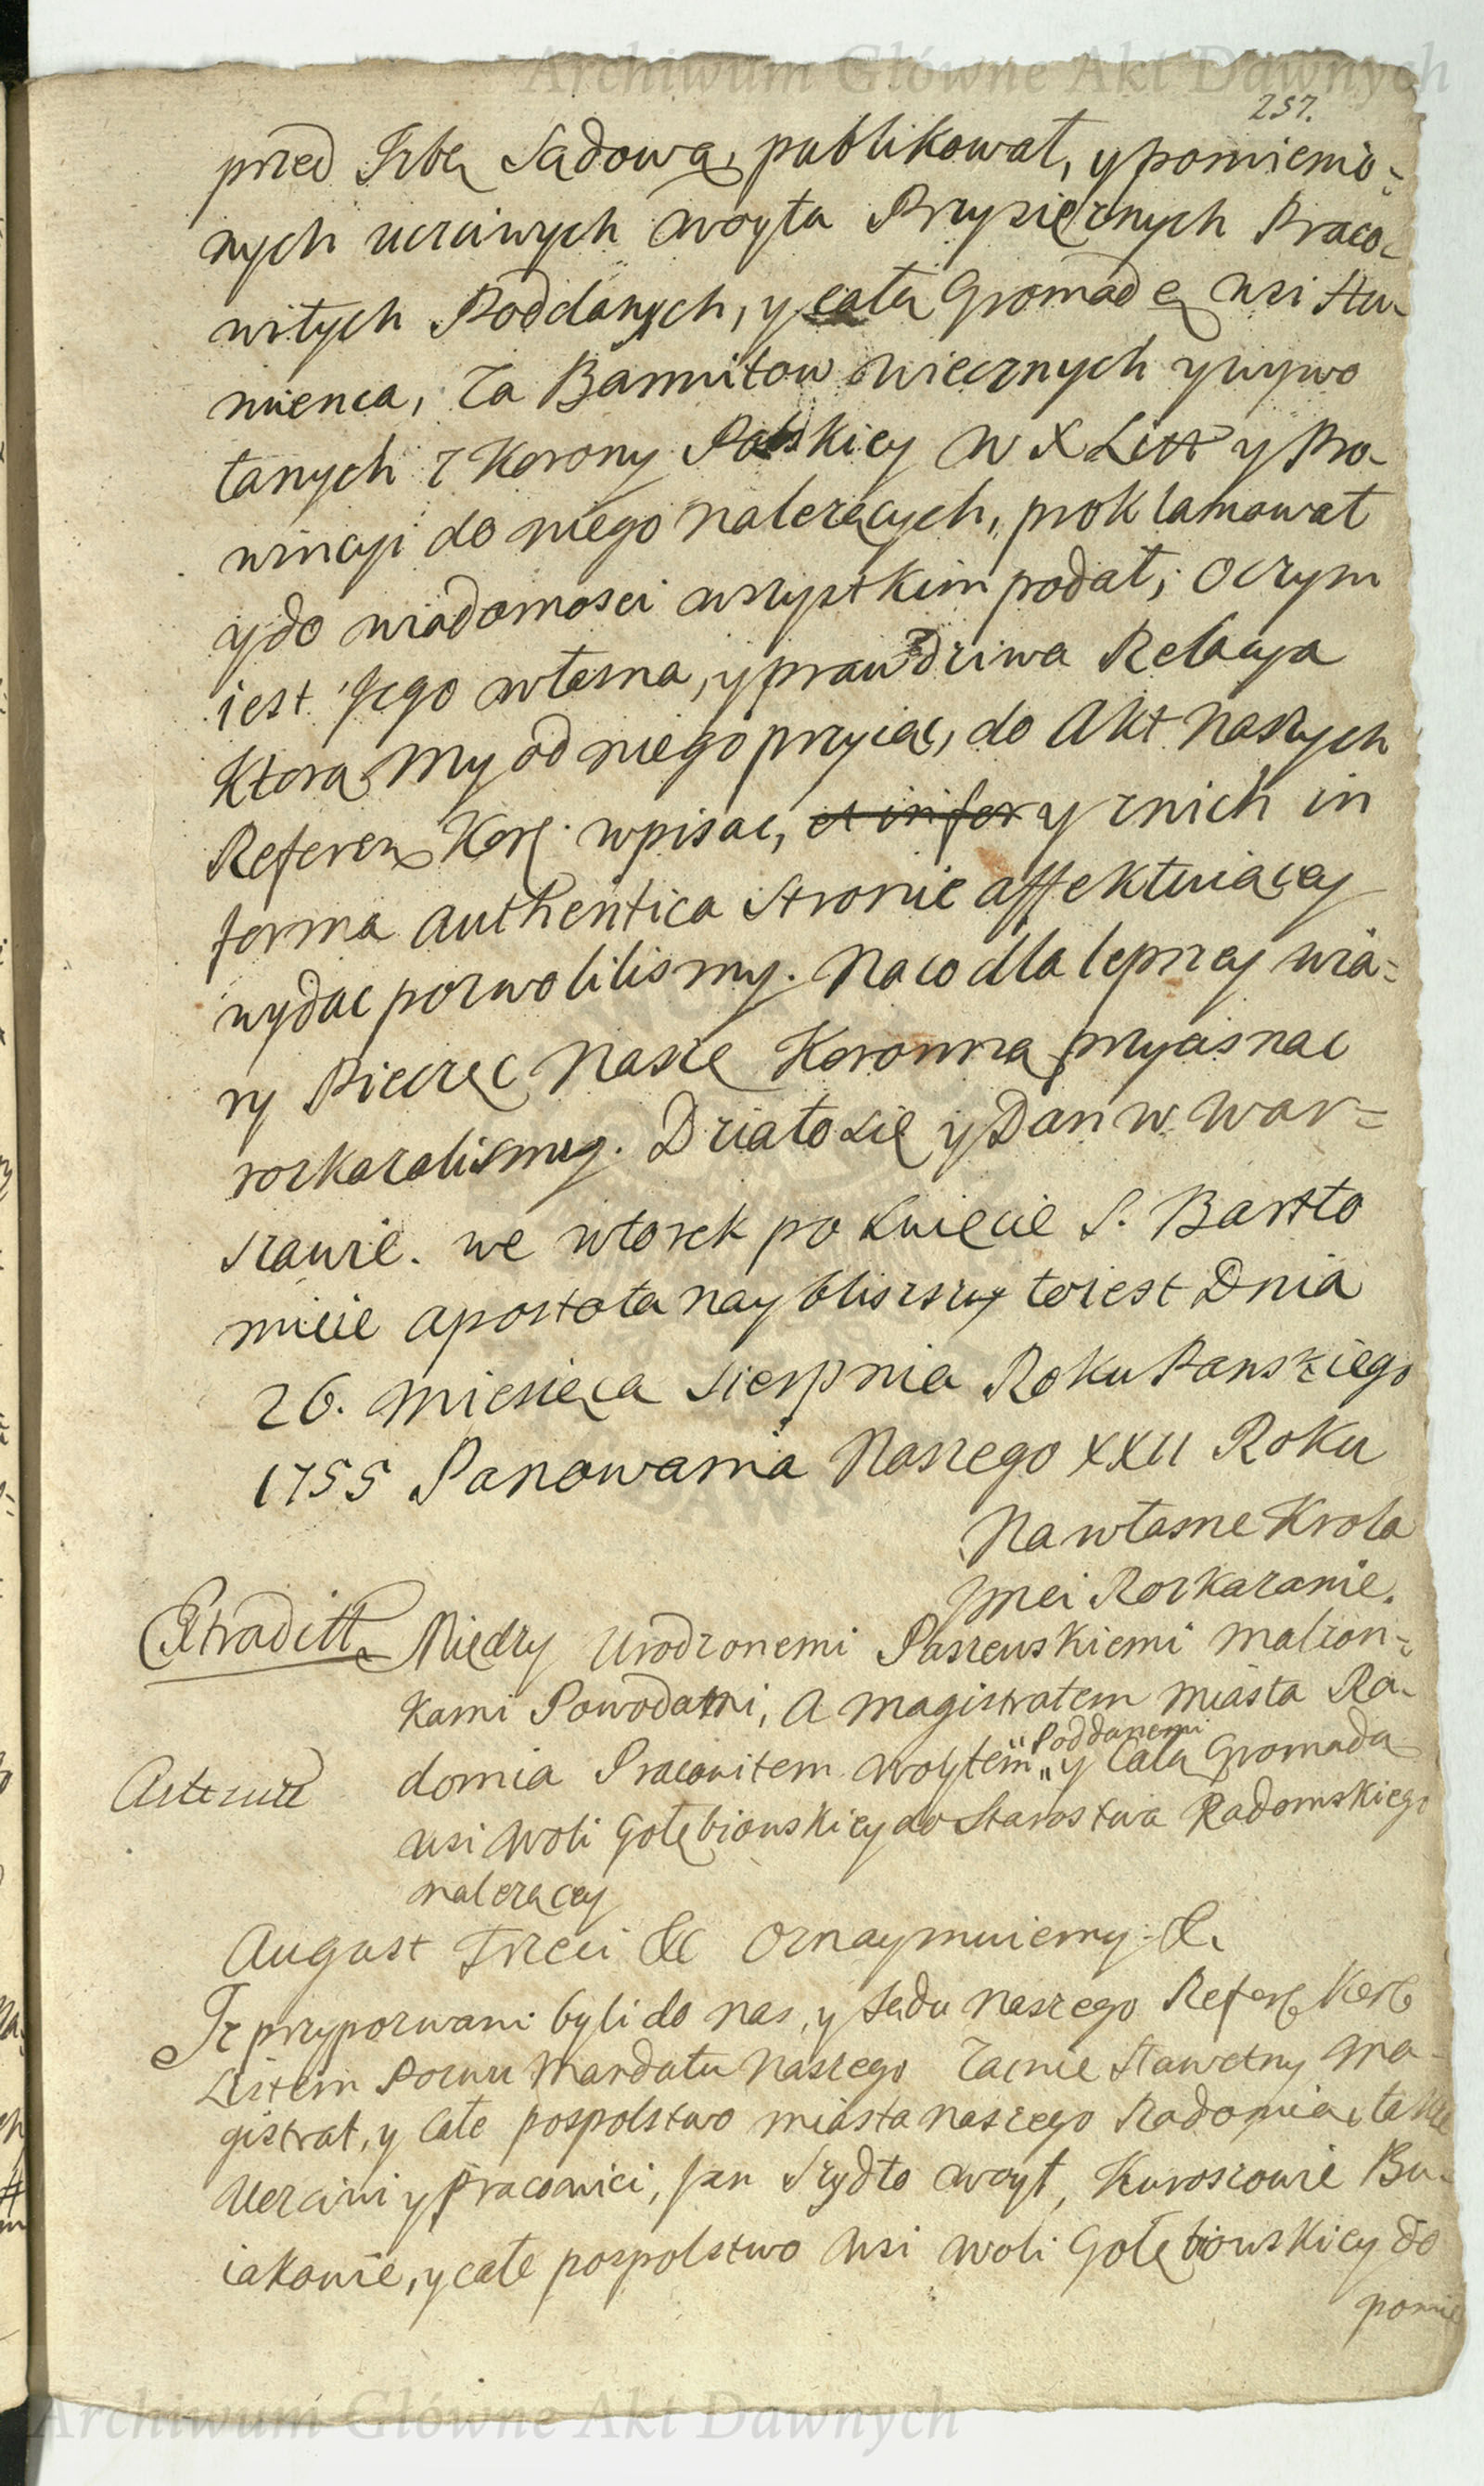 Archiwum Główne Akt Dawnych
257.
przed Izbą Sądową, publikował, y pomienio=
nych uczciwych woyta Przysięznych Praco=
witych Poddanych, y całą Gromadę wsi Hu-
mienca, za Bannitow wiecznych y wywo
łanych z Korony Polskiey W X Litt y Pro-
wincyi do niego nalezących, proklamował
y do wiadomosci wszystkim podał; O czym
iest Jego własna, y prawdziwa Relacya
Ktorą My od niego przyiąć, do Akt naszych
Referen Kor: wpisac, et infor y z nich in
forma authentica Stronie affektuiącey
wydac pozwolilismy. Na co dla lepszey wia=
ry Pieczęc Naszę Koronną przycisnac
rozkazalismy. Działo się y Dan w War=
szawie. we wtorek po Swięcie S. Bartło
mieie apostoła nayblizszy to iest Dnia
26. Miesięca Sierpnia Roku Panskiego
1755 Panowania Naszego XXII Roku
Na własne Krola
Jmci Rozkazanie.
Extraditt Między Urodzonemi Paszewskiemi małzon=
kami Powodami, A magistratem miasta Ra-
Poddanemi
domia Pracowitem Woytem „ y Całą Gromada
wsi Woli Gołębiowskiey do Starostwa Radomskiego
nalezącey
August Trzeci &c Oznaymuiemy &c
Iz przypozwani byli do nas, y Sądu naszego Refer Kor
Listem Pozwu Mandatu Naszego Zacnie Sławetny Ma-
gistrat, y Całe pospolstwo miasta naszego Radomia, takze
Uczciwi y Pracowici, Jan Szydło woyt, Kuroszowie Bu-
iakowie, y całe pospolstwo wsi Woli Gołębiowskiey do
pomie
Archiwum Główne Akt Dawnych